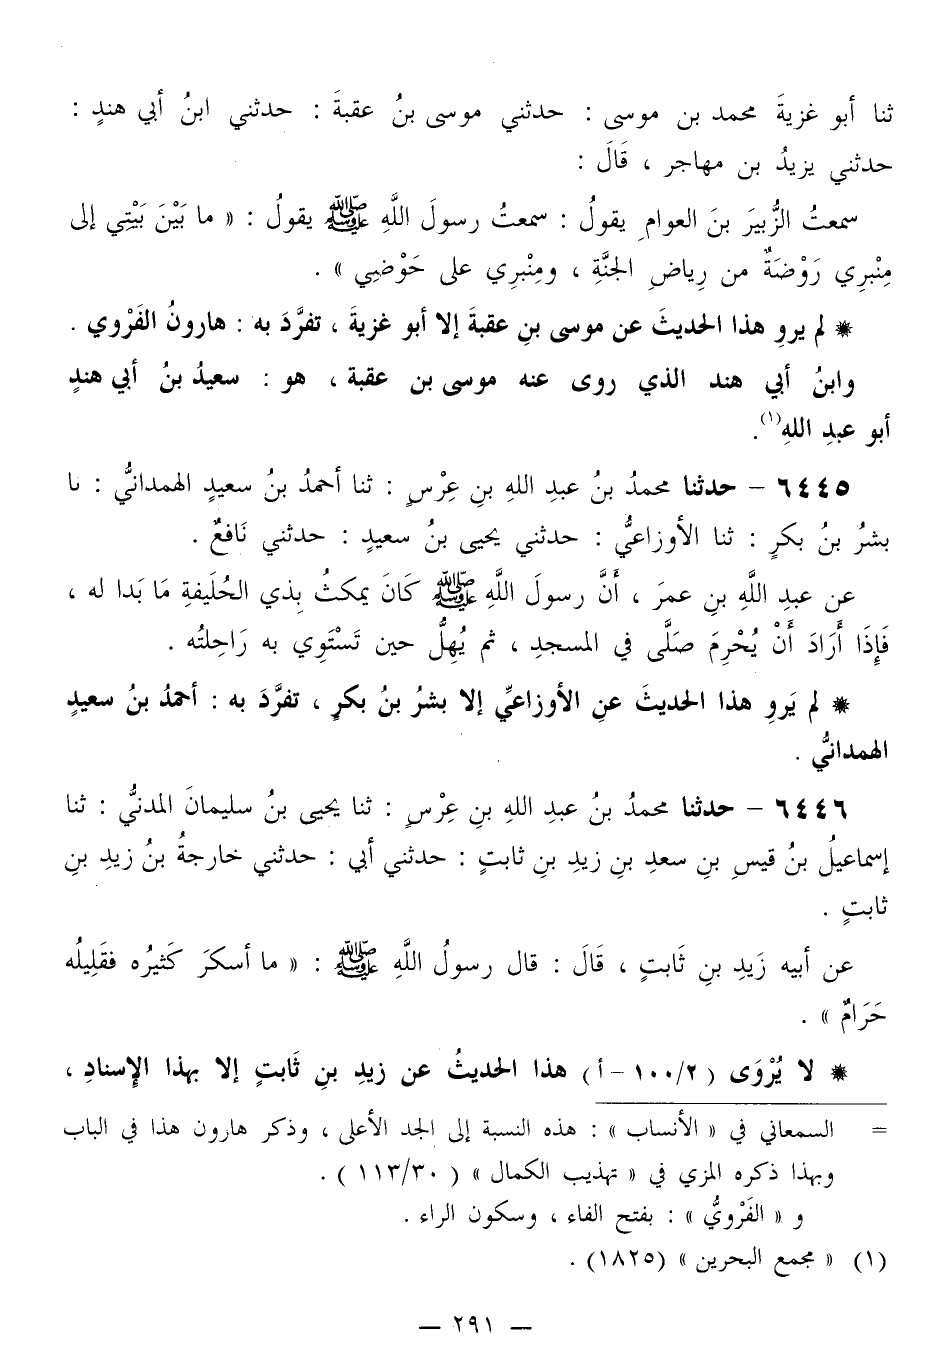 ثنا أبو غزيةَ محمد بن موسى : حدثني موسى بنُ عقبةَ : حدثني ابنُ أبي هندٍ :
حدثني يزيدُ بن مهاجر ، قَالَ :
سمعتُ الزُّبيرَ بنَ العوامِ يقولُ : سمعتُ رسولَ اللَّهِ ﷺ يقولُ : « ما بَيْنَ بَيْتِي إلى
مِنْبرِي رَوْضَةٌ من رِياضِ الجنَّةِ ، ومِنْبرِي على حَوْضِي » .
* لم يروِ هذا الحديثَ عن موسى بنِ عقبةَ إلا أبو غزيةَ ، تفرَّدَ به : هارونُ الفَرْوي .
وابنُ أبي هند الذي روى عنه موسى بن عقبة ، هو : سعيدُ بنُ أبي هندٍ
أبو عبدِ اللهِ(١).
٦٤٤٥ – حدثنا محمدُ بنُ عبدِ اللهِ بنِ عِرْسٍ : ثنا أحمدُ بنُ سعيدٍ الهمدانيُّ : نا
بشرُ بنُ بكرٍ : ثنا الأوزاعيُّ : حدثني يحيى بنُ سعيدٍ : حدثني نَافعٌ .
عن عبدِ اللَّهِ بنِ عمرَ ، أَنَّ رسولَ اللَّهِ ﷺ كَانَ يمكثُ بِذي الحُلَيفةِ مَا بَدا له ،
فَإِذَا أَرَادَ أَنْ يُحْرِمَ صَلَّى في المسجدِ ، ثم يُهِلُّ حين تَسْتَوِي به رَاحِلتُه .
* لم يَروِ هذا الحديثَ عنِ الأوزاعيِّ إلا بشرُ بنُ بكرٍ ، تفرَّدَ به : أحمدُ بنُ سعيدٍ
الهمدانيُّ .
٦٤٤٦ – حدثنا محمدُ بنُ عبدِ اللهِ بنِ عِرْسٍ : ثنا يحيى بنُ سليمانَ المدنيُّ : ثنا
إسماعيلُ بنُ قيسِ بنِ سعدِ بنِ زيدِ بنِ ثابتٍ : حدثني أبي : حدثني خارجةُ بنُ زيدِ بنِ
ثابتٍ .
عن أبيه زَيدِ بنِ ثَابتٍ ، قَالَ : قال رسولُ اللَّهِ ﷺ : « ما أسكرَ كَثيرُه فقَلِيلُه
حَرَامٌ » .
* لا يُرْوَى (٢/ ١٠٠ – أ) هذا الحديثُ عن زيدِ بنِ ثَابتٍ إلا بهذا الإسنادِ ،
= السمعاني في « الأنساب » : هذه النسبة إلى الجد الأعلى ، وذكر هارون هذا في الباب
وبهذا ذكره المزي في « تهذيب الكمال » ( ٣٠/ ١١٣ ) .
و « الفَرْويُّ » : بفتح الفاء ، وسكون الراء .
(١) « مجمع البحرين » (١٨٢٥) .
— ٢٩١ —